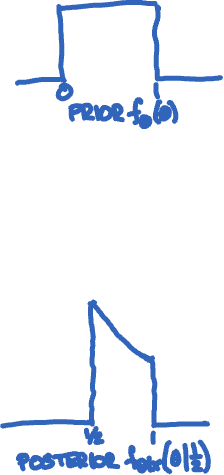 0 1
PRIOR f_Θ(θ)
1/2 1
POSTERIOR f_Θ|X(θ|1/2)